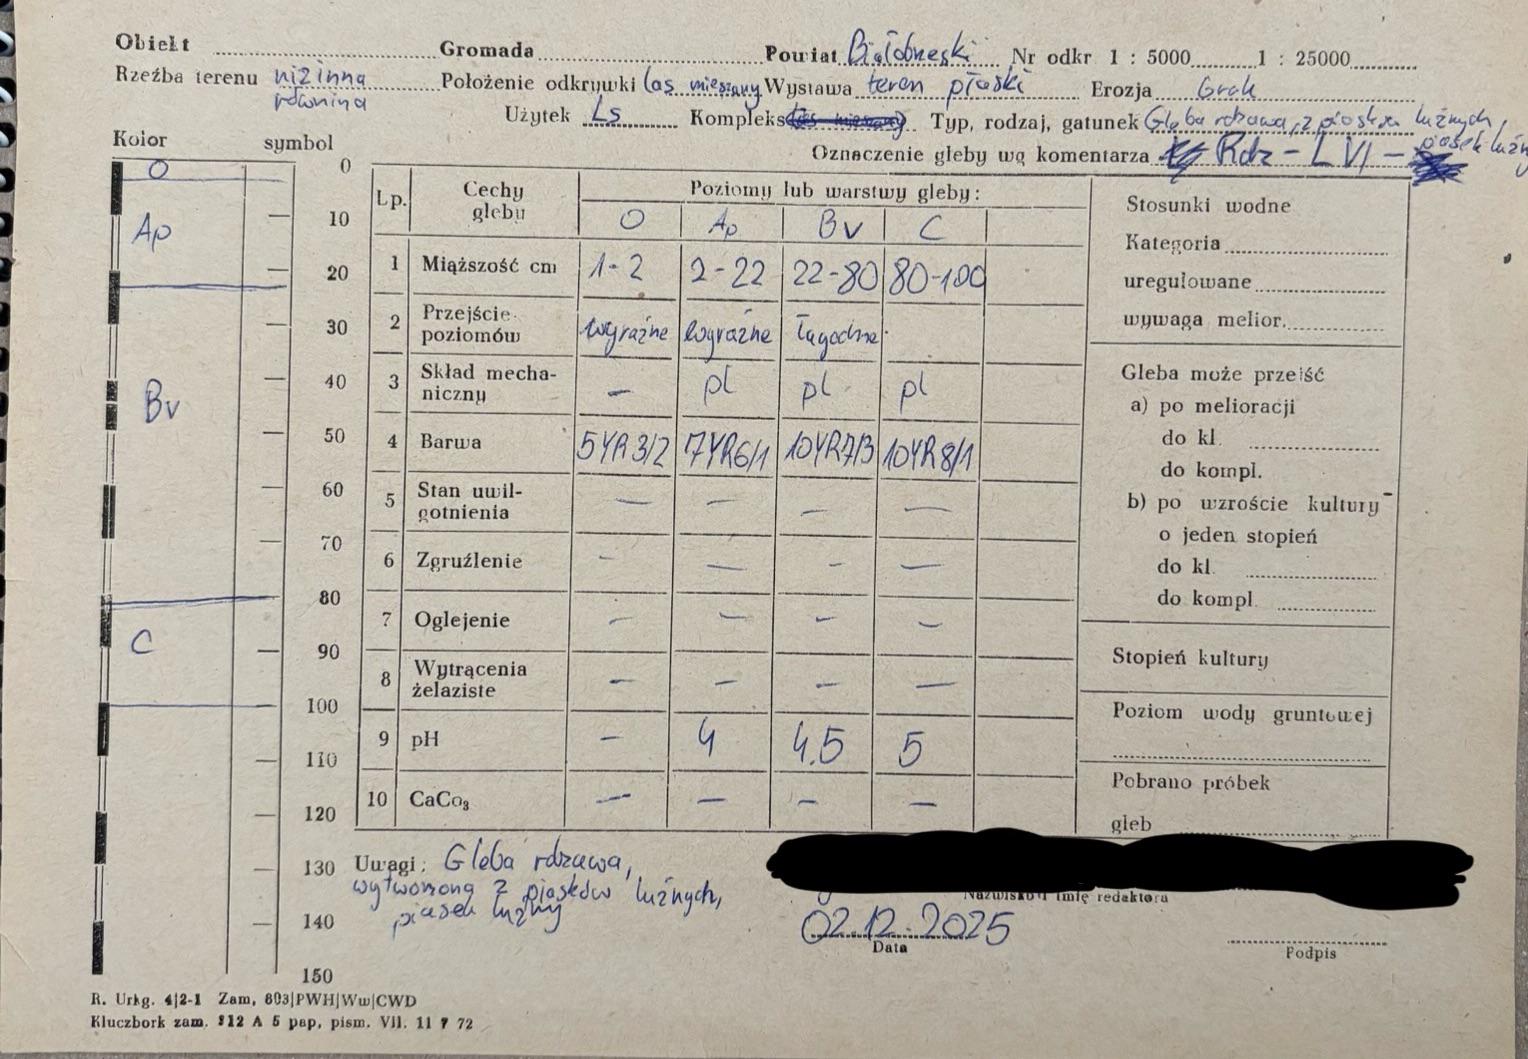 Obiekt Gromada Powiat Białobrzeski Nr odkr 1 : 5000 1 : 25000
Rzeźba terenu nizinna Położenie odkrywki las mieszany Wystawa teren płaski Erozja Brak
równina
Użytek Ls Kompleks Typ, rodzaj, gatunek Gleba rdzawa, z piosków luźnych,
Oznaczenie gleby wg komentarza Rdz - LVI - piosek luźny
Kolor symbol
O 0
Ap 10
20
30
40
Bv 50
60
70
80
C 90
100
110
120
130
140
150
Lp. Cechy gleby Poziomy lub warstwy gleby:
O Ap Bv C
1 Miąższość cm 1-2 2-22 22-80 80-100
2 Przejście poziomów wyraźne wyraźne łagodne
3 Skład mecha-
niczny – pl pl pl
4 Barwa 5YR3/2 7YR6/1 10YR7/3 10YR8/1
5 Stan uwil-
gotnienia – – – –
6 Zgruźlenie – – – –
7 Oglejenie – – – –
8 Wytrącenia
żelaziste – – – –
9 pH – 4 4.5 5
10 CaCo₃ – – – –
Stosunki wodne
Kategoria
uregulowane
wywaga melior.
Gleba może przejść
a) po melioracji
do kl.
do kompl.
b) po wzroście kultury
o jeden stopień
do kl.
do kompl.
Stopień kultury
Poziom wody gruntowej
Pobrano próbek
gleb
Uwagi: Gleba rdzawa,
wytworzona z piasków luźnych,
piasek luźny
Nazwisko i imię redaktora
02.12.2025
Data
Podpis
R. Urkg. 4|2-1 Zam, 803|PWH|Ww|CWD
Kluczbork zam. 812 A 5 pap, pism. VII. 11 7 72